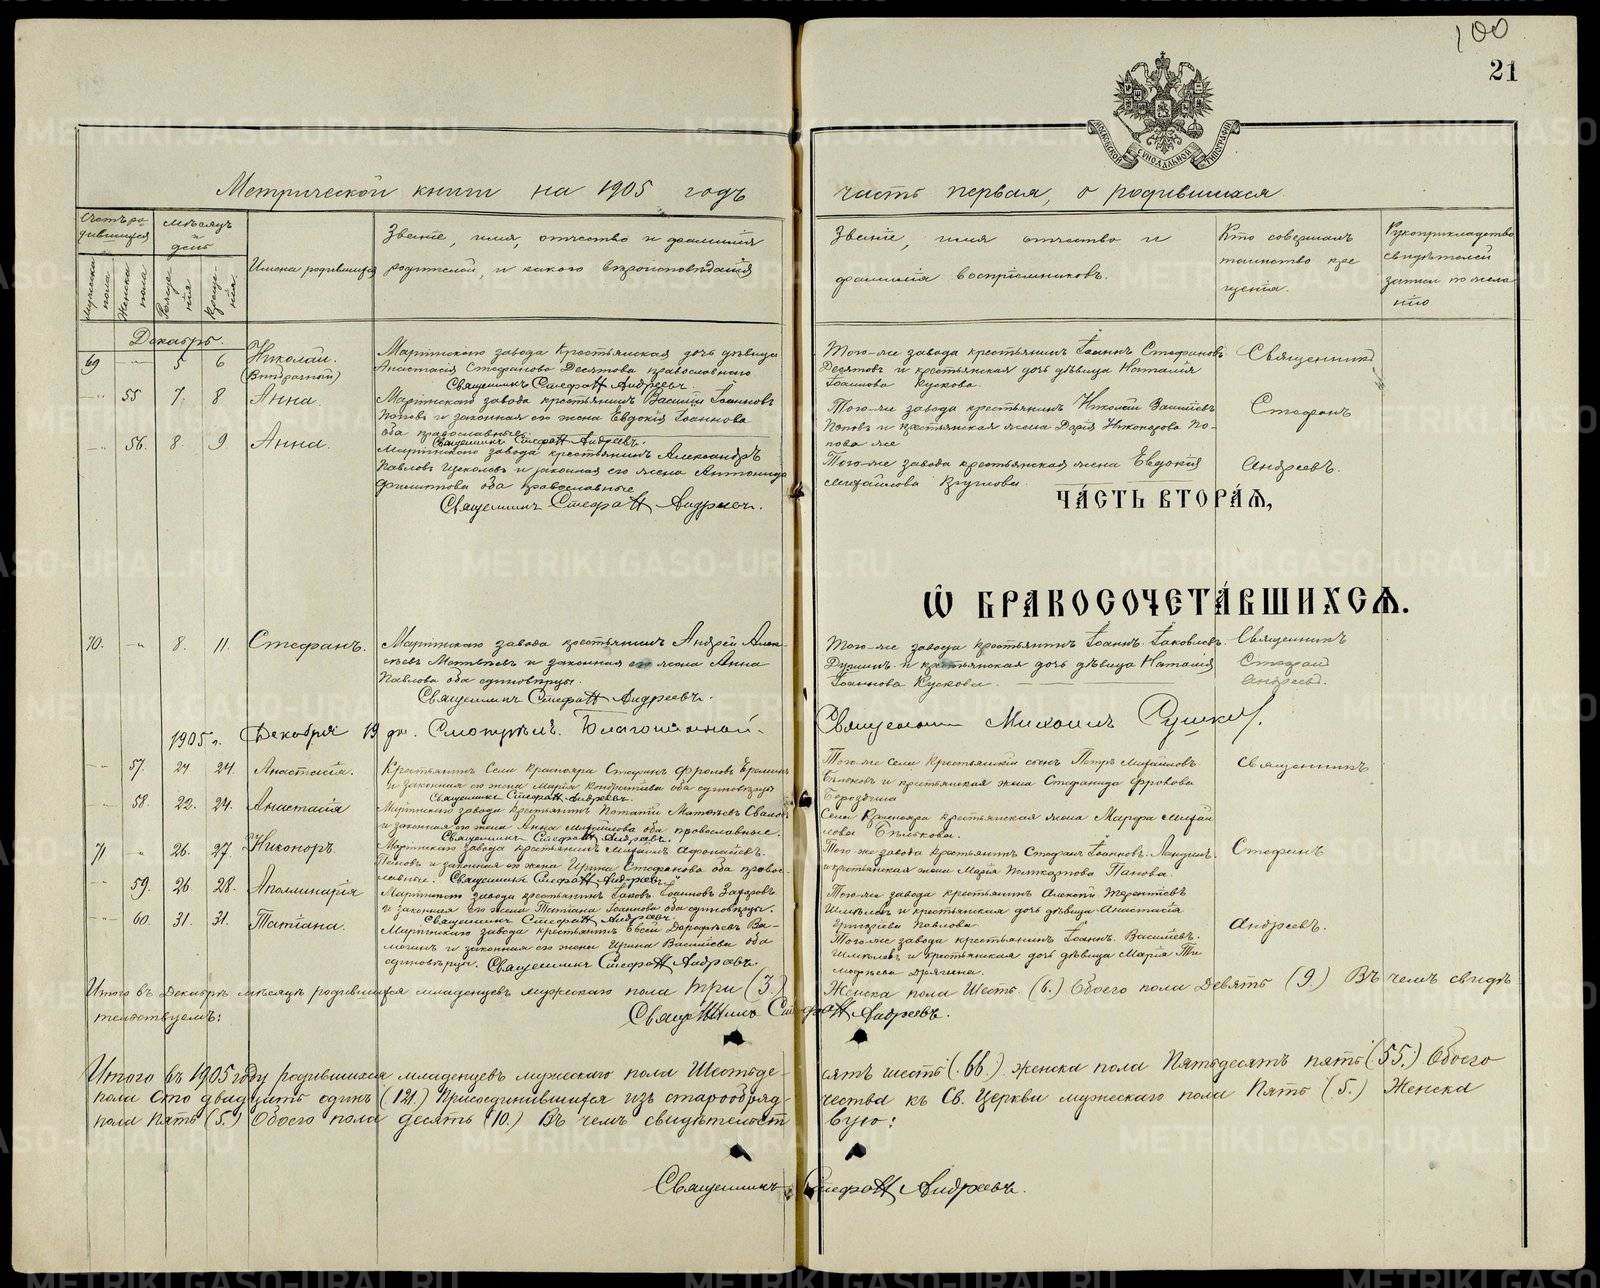 100
21
МОСКОВСКОЙ СѴНОДАЛЬНОЙ ТИПОГРАФІИ
Метрической книги на 1905 годъ часть первая, о родившихся.
Счетъ родившихся
Мѣсяцъ и день
Имена родившихся
Званіе, имя, отчество и фамилія
родителей, и какого вѣроисповѣданія
Званіе, имя отчество и
фамилія воспріемниковъ.
Кто совершалъ
таинство кре
щенія.
Рукоприкладство
свидѣтелей
записи по жела
нію
Мужска пола.
Женска пола
Рожде нія
Креще нія
Декабрь.
69 " 5 6 Николай.
(Внѣбрачный)
Маріинскаго завода крестьянская дочь дѣвица
Анастасія Стефанова Десятова православнаго
Священникъ Стефанъ Андреевъ.
Того-же завода крестьянинъ Іоаннъ Стефановъ
Десятовъ и крестьянская дочь дѣвица Наталія
Іоаннова Кускова.
Священникъ
" 55 7. 8 Анна.
Маріинскаго завода крестьянинъ Василій Іоанновъ
Поповъ и законная его жена Евдокія Іоаннова
оба православные.
Священникъ Стефанъ Андреевъ.
Того-же завода крестьянинъ Николай Васильевъ
Поповъ и крестьянская жена Дарія Никонорова По-
пова же
Стефанъ
" 56. 8 9 Анна.
Маріинскаго завода крестьянинъ Александръ
Павловъ и законная его жена Антонина
Филиппова оба православные
Священникъ Стефанъ Андреевъ.
Того-же завода крестьянская жена Евдокія
Михайлова Круглова.
Андреевъ.
ЧА́СТЬ ВТОРА́Ѧ,
Ѡ БРАКОСОЧЕТА́ВШИХСѦ.
70. " 8. 11. Стефанъ.
Маріинскаго завода крестьянинъ Андрей Алек-
сѣевъ Матвѣевъ и законная его жена Анна
Павлова оба единовѣрцы.
Священникъ Стефанъ Андреевъ.
Того-же завода крестьянинъ Іоаннъ Іаковлевъ
и крестьянская дочь дѣвица Наталія
Іоаннова Кускова.
Священникъ
Стефанъ
Андреевъ.
1905 г. Декабря 19 дн. Смотрѣлъ. Благочинный. Священникъ Михаилъ
57. 21 24. Анастасія.
Крестьянинъ Села Краснояра Стефанъ Фроловъ Ереминъ
и законная его жена Марія Кондратьева оба единовѣрцы
Священникъ Стефанъ Андреевъ.
Того-же Села Крестьянскій сынъ Петръ Михайловъ
Бѣльковъ и крестьянская жена Стефанида Фролова
Бороздина
Священникъ
58. 22. 24. Анастасія
Маріинскаго завода крестьянинъ Потапій Матвѣевъ
и законная его жена Анна Михайлова оба православные.
Священникъ Стефанъ Андреевъ.
Села Краснояра крестьянская жена Марфа Михай
лова Бѣлькова.
71 " 26. 27. Никоноръ.
Маріинскаго завода крестьянинъ Михаилъ Афонасіевъ.
Поповъ и законная его жена Ирина Стефанова оба право-
славные. Священникъ Стефанъ Андреевъ.
Того-же завода крестьянинъ Стефанъ Іоанновъ
и крестьянская жена Марія Попова.
Стефанъ
59. 26 28. Аполлинарія
Маріинскаго завода крестьянинъ Іаковъ Іоанновъ Захаровъ
и законная его жена Татіана Іоаннова оба единовѣрцы.
Священникъ Стефанъ Андреевъ.
Того-же завода крестьянинъ Алексій Терентіевъ
Шмелевъ и крестьянская дочь дѣвица Анастасія
Григорьева Павлова
60. 31. 31. Татіана.
Маріинскаго завода крестьянинъ Евсей Дорофѣевъ Ва-
и законная его жена Ирина Васильева оба
единовѣрцы. Священникъ Стефанъ Андреевъ.
Того-же завода крестьянинъ Іоаннъ Васильевъ.
Шмелевъ и крестьянская дочь дѣвица Марія Ти
мофеева Дрягина.
Андреевъ.
Итого въ Декабрѣ мѣсяцѣ родившихся младенцевъ мужескаго пола три (3.) Женска пола Шесть (6.) Обоего пола Девять (9.) Въ чемъ свидѣ
тельствуемъ:
Священникъ Стефанъ Андреевъ.
Итого въ 1905 году родившихся младенцевъ мужескаго пола Шестьде- сятъ шесть (66.) женска пола Пятьдесятъ пять (55.) Обоего
пола Сто двадцать одинъ (121.) Присоединившихся изъ старообряд- чества къ Св. Церкви мужескаго пола Пять (5.) Женска
пола Пять (5.) Обоего пола десять (10.) Въ чемъ свидѣтельст вую:
Священникъ Стефанъ Андреевъ.
METRIKI.GASO-URAL.RU